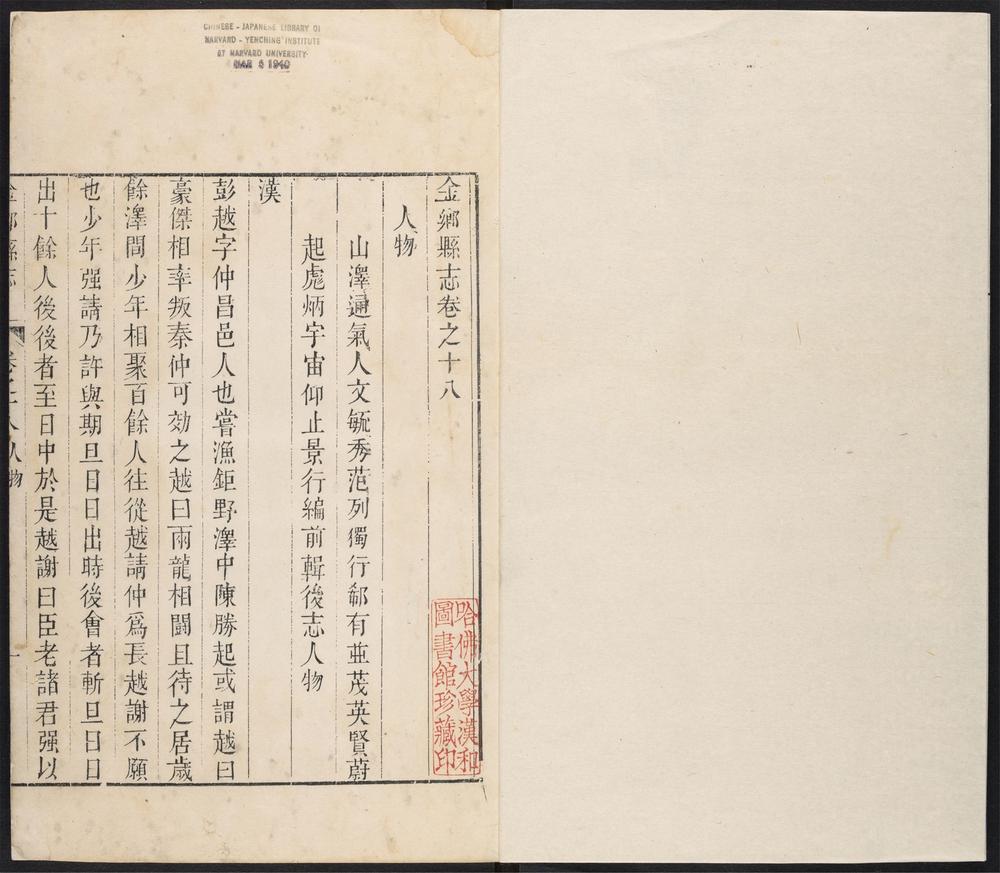 CHINESE - JAPANESE LIBRARY OF
HARVARD - YENCHING INSTITUTE
AT HARVARD UNIVERSITY
MAR 5 1940
金鄉縣志卷之十八
人物
山澤通氣人文毓秀范列獨行郗有亚茂英賢蔚
起彪炳宇宙仰止景行編前輯後志人物
漢
彭越字仲昌邑人也嘗漁鉅野澤中陳勝起或謂越曰
豪傑相率叛秦仲可効之越曰兩龍相鬪且待之居歲
餘澤間少年相聚百餘人往從越請仲爲長越謝不願
也少年强請乃許與期旦日日出時後會者斬旦日日
出十餘人後後者至日中於是越謝曰臣老諸君强以
人物
哈佛大學漢和
圖書館珍藏印